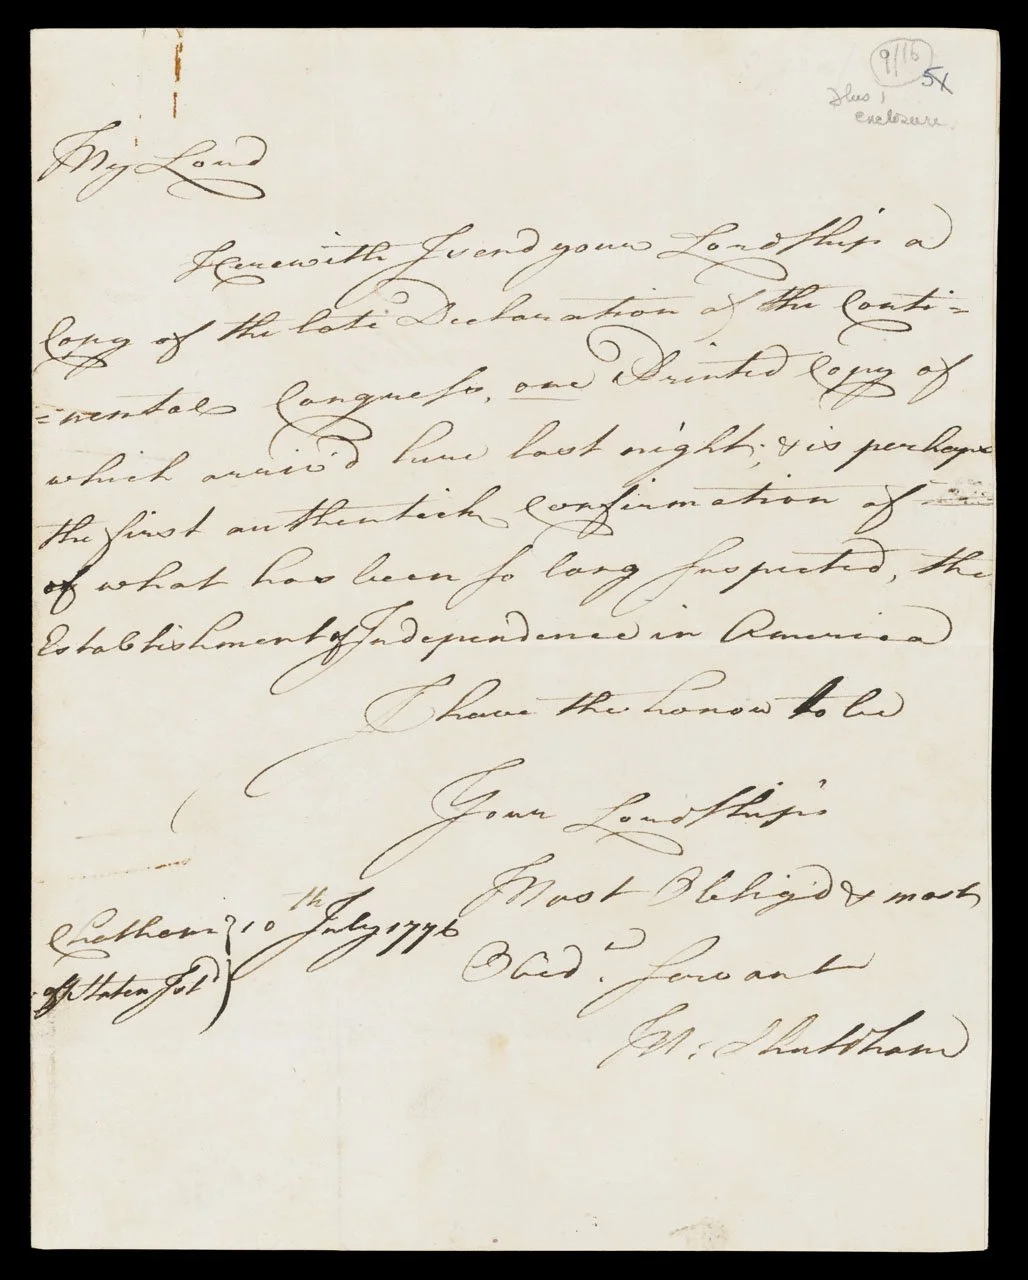 9/16
5x
Plus 1
enclosure.
My Lord
Herewith I send your Lordship a
Copy of the late Declaration of the Conti=
=nental Congress, one Printed Copy of
which arriv'd here last night; & is perhaps
the first authentick Confirmation of
of what has been so long suspected, the
Establishment of Independence in America
I have the honor to be
Your Lordship's
Most Oblig'd & most
Obed.t Servant
M: Shuldham
Chatham } 10th July 1776
off Staten Isld